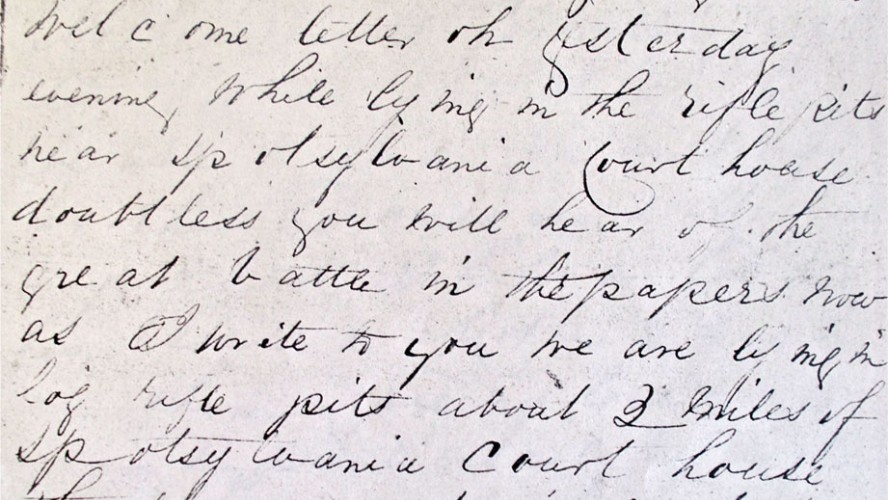 welcome letter on yesterday
evening while lying in the rifle pits
near Spotsylvania Court house
doubtless you will hear of the
great battle in the papers now
as I write to you we are lying in
log rifle pits about 2 miles of
Spotsylvania Court house